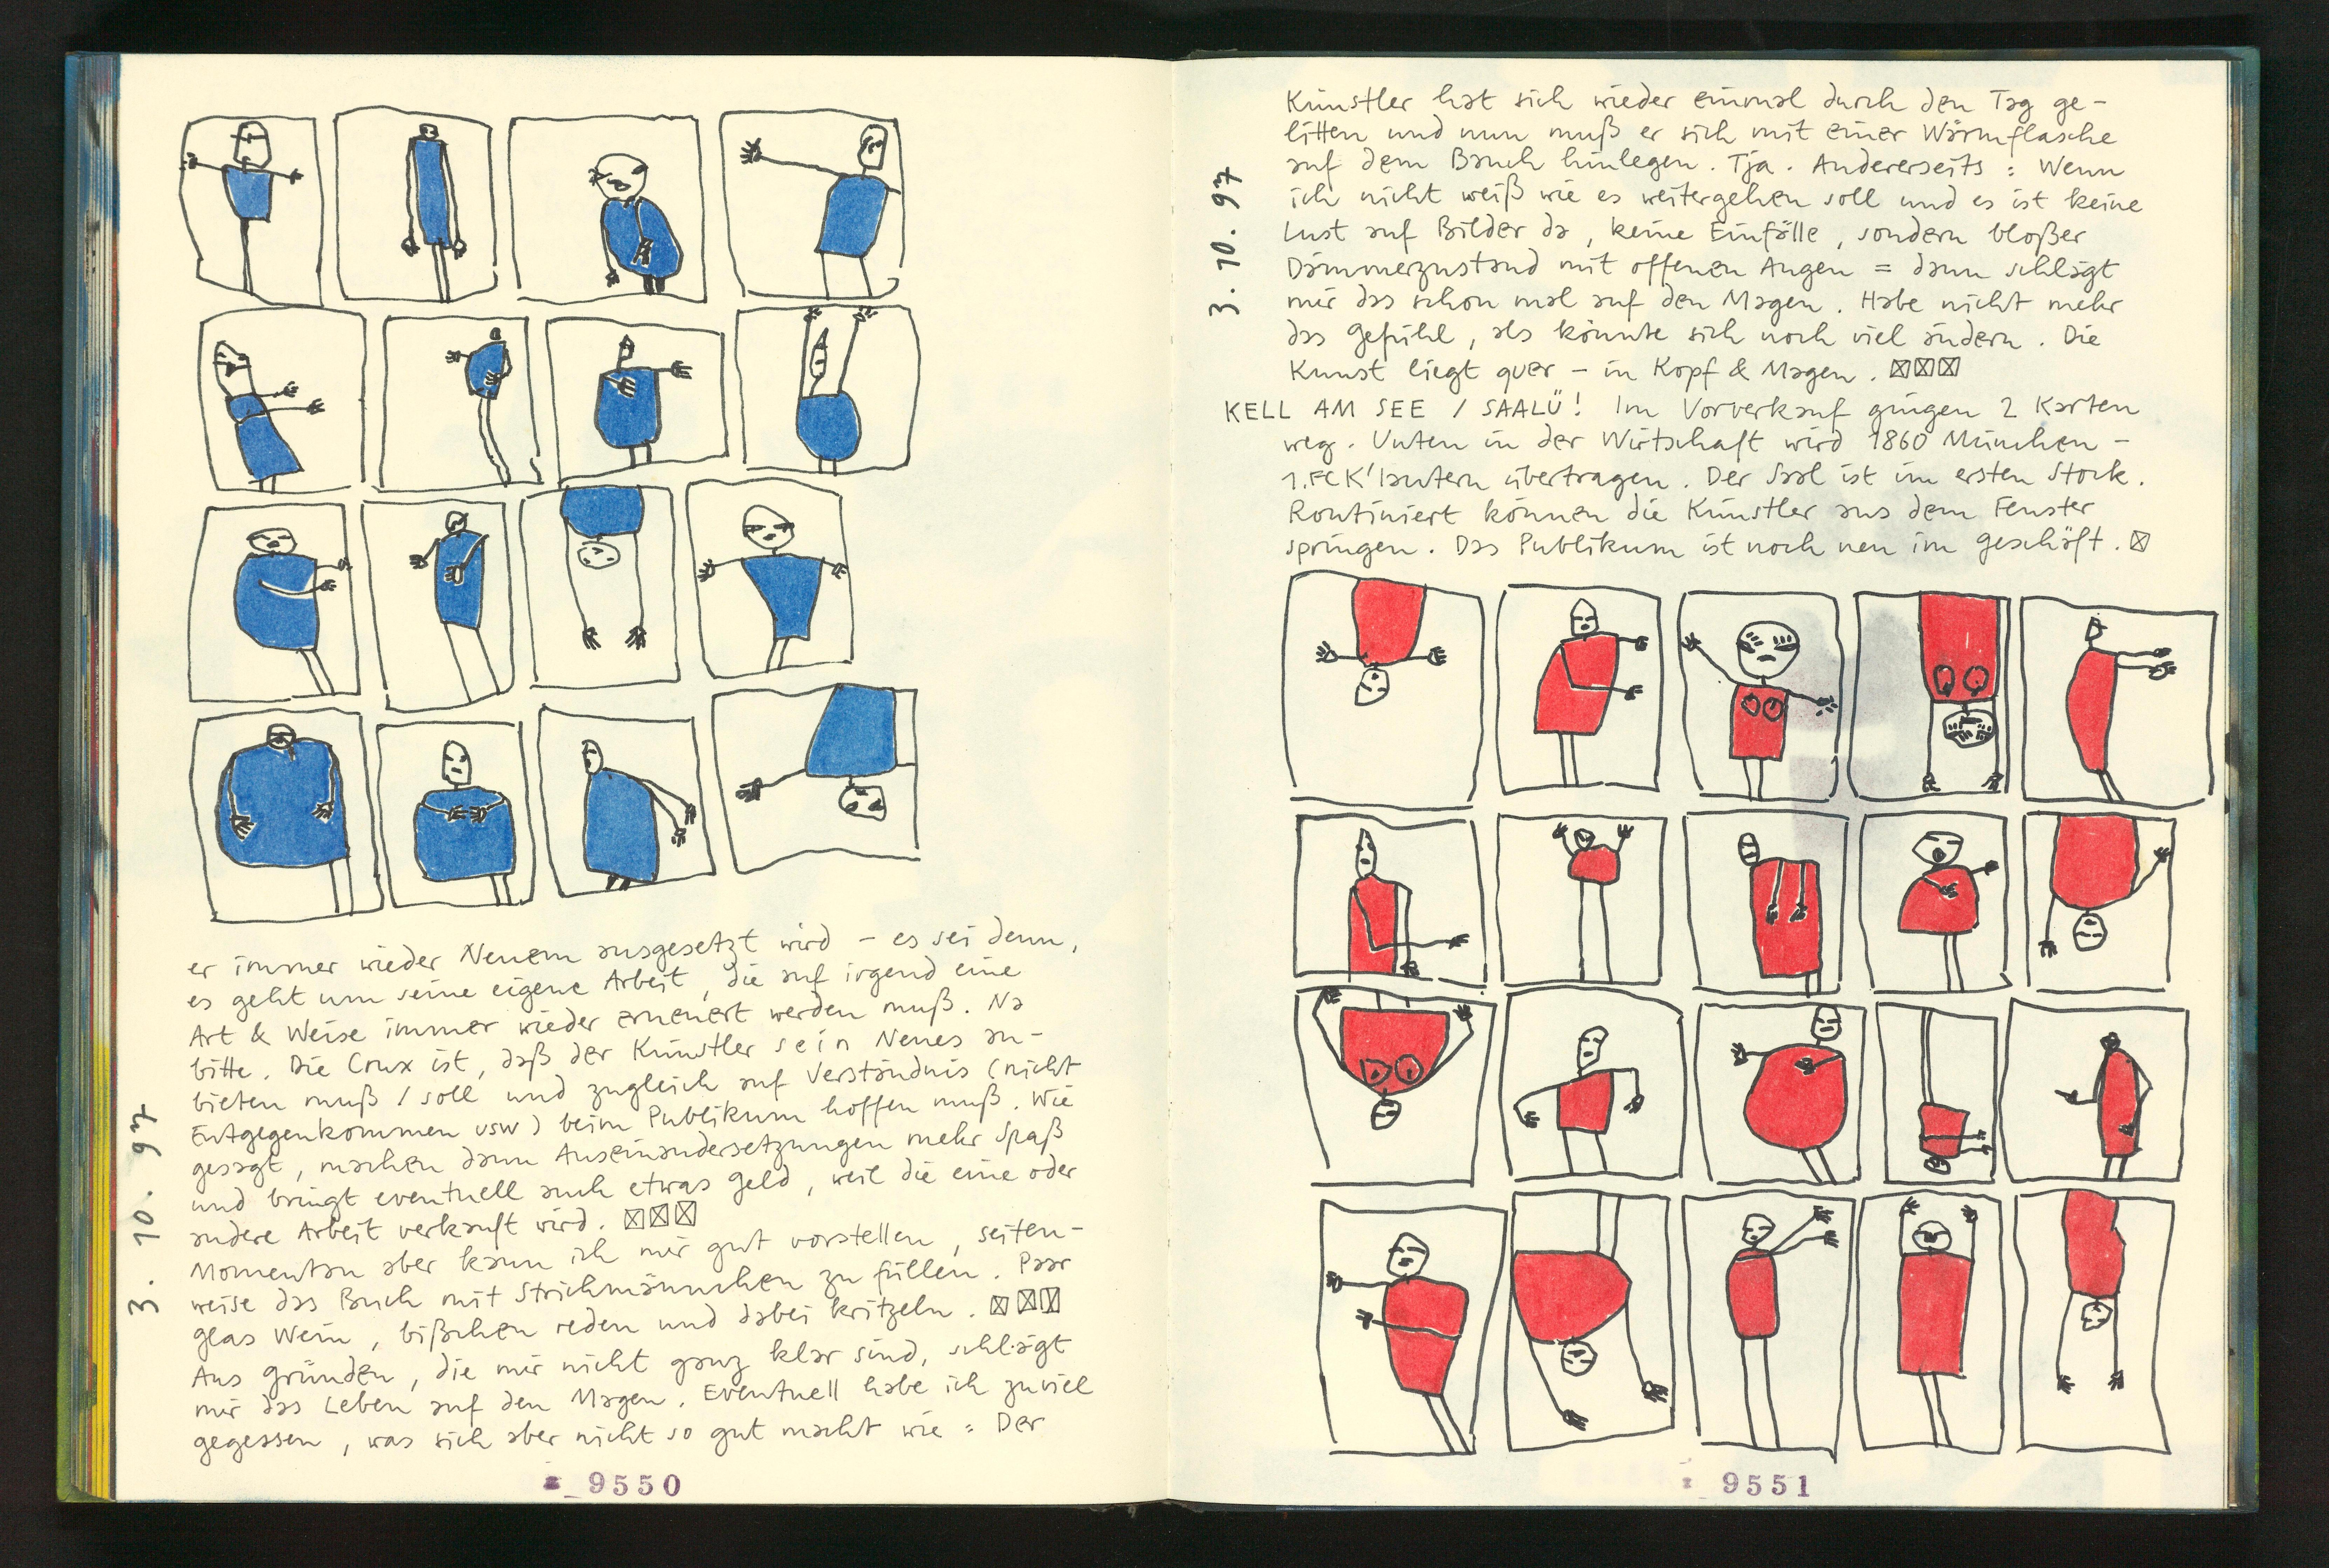 3. 10. 97
er immer wieder Neuem ausgesetzt wird – es sei denn,
es geht um seine eigene Arbeit, die auf irgend eine
Art & Weise immer wieder erneuert werden muß. Na
bitte. Die Crux ist, daß der Künstler sein Neues an-
bieten muß / soll und zugleich auf Verständnis (nicht
Entgegenkommen usw) beim Publikum hoffen muß. Wie
gesagt, machen dann Auseinandersetzungen mehr Spaß
und bringt eventuell auch etwas Geld, weil die eine oder
andere Arbeit verkauft wird. ☒☒☒
Momentan aber kann ich mir gut vorstellen, seiten-
weise das Buch mit Strichmännchen zu füllen. Paar
Glas Wein, bißchen reden und dabei kritzeln. ☒☒☒
Aus Gründen, die mir nicht ganz klar sind, schlägt
mir das Leben auf den Magen. Eventuell habe ich zuviel
gegessen, was sich aber nicht so gut macht wie: Der
9550
3. 10. 97
Künstler hat sich wieder einmal durch den Tag ge-
litten und nun muß er sich mit einer Wärmflasche
auf dem Bauch hinlegen. Tja. Andererseits: Wenn
ich nicht weiß wie es weitergehen soll und es ist keine
Lust auf Bilder da, keine Einfälle, sondern bloßer
Dämmerzustand mit offenen Augen = dann schlägt
mir das schon mal auf den Magen. Habe nicht mehr
das Gefühl, als könnte sich noch viel ändern. Die
Kunst liegt quer – in Kopf & Magen. ☒☒☒
KELL AM SEE / SAALÜ! Im Vorverkauf gingen 2 Karten
weg. Unten in der Wirtschaft wird 1860 München –
1.FCK'lautern übertragen. Der Saal ist im ersten Stock.
Routiniert können die Künstler aus dem Fenster
springen. Das Publikum ist noch neu im Geschäft. ☒
9551